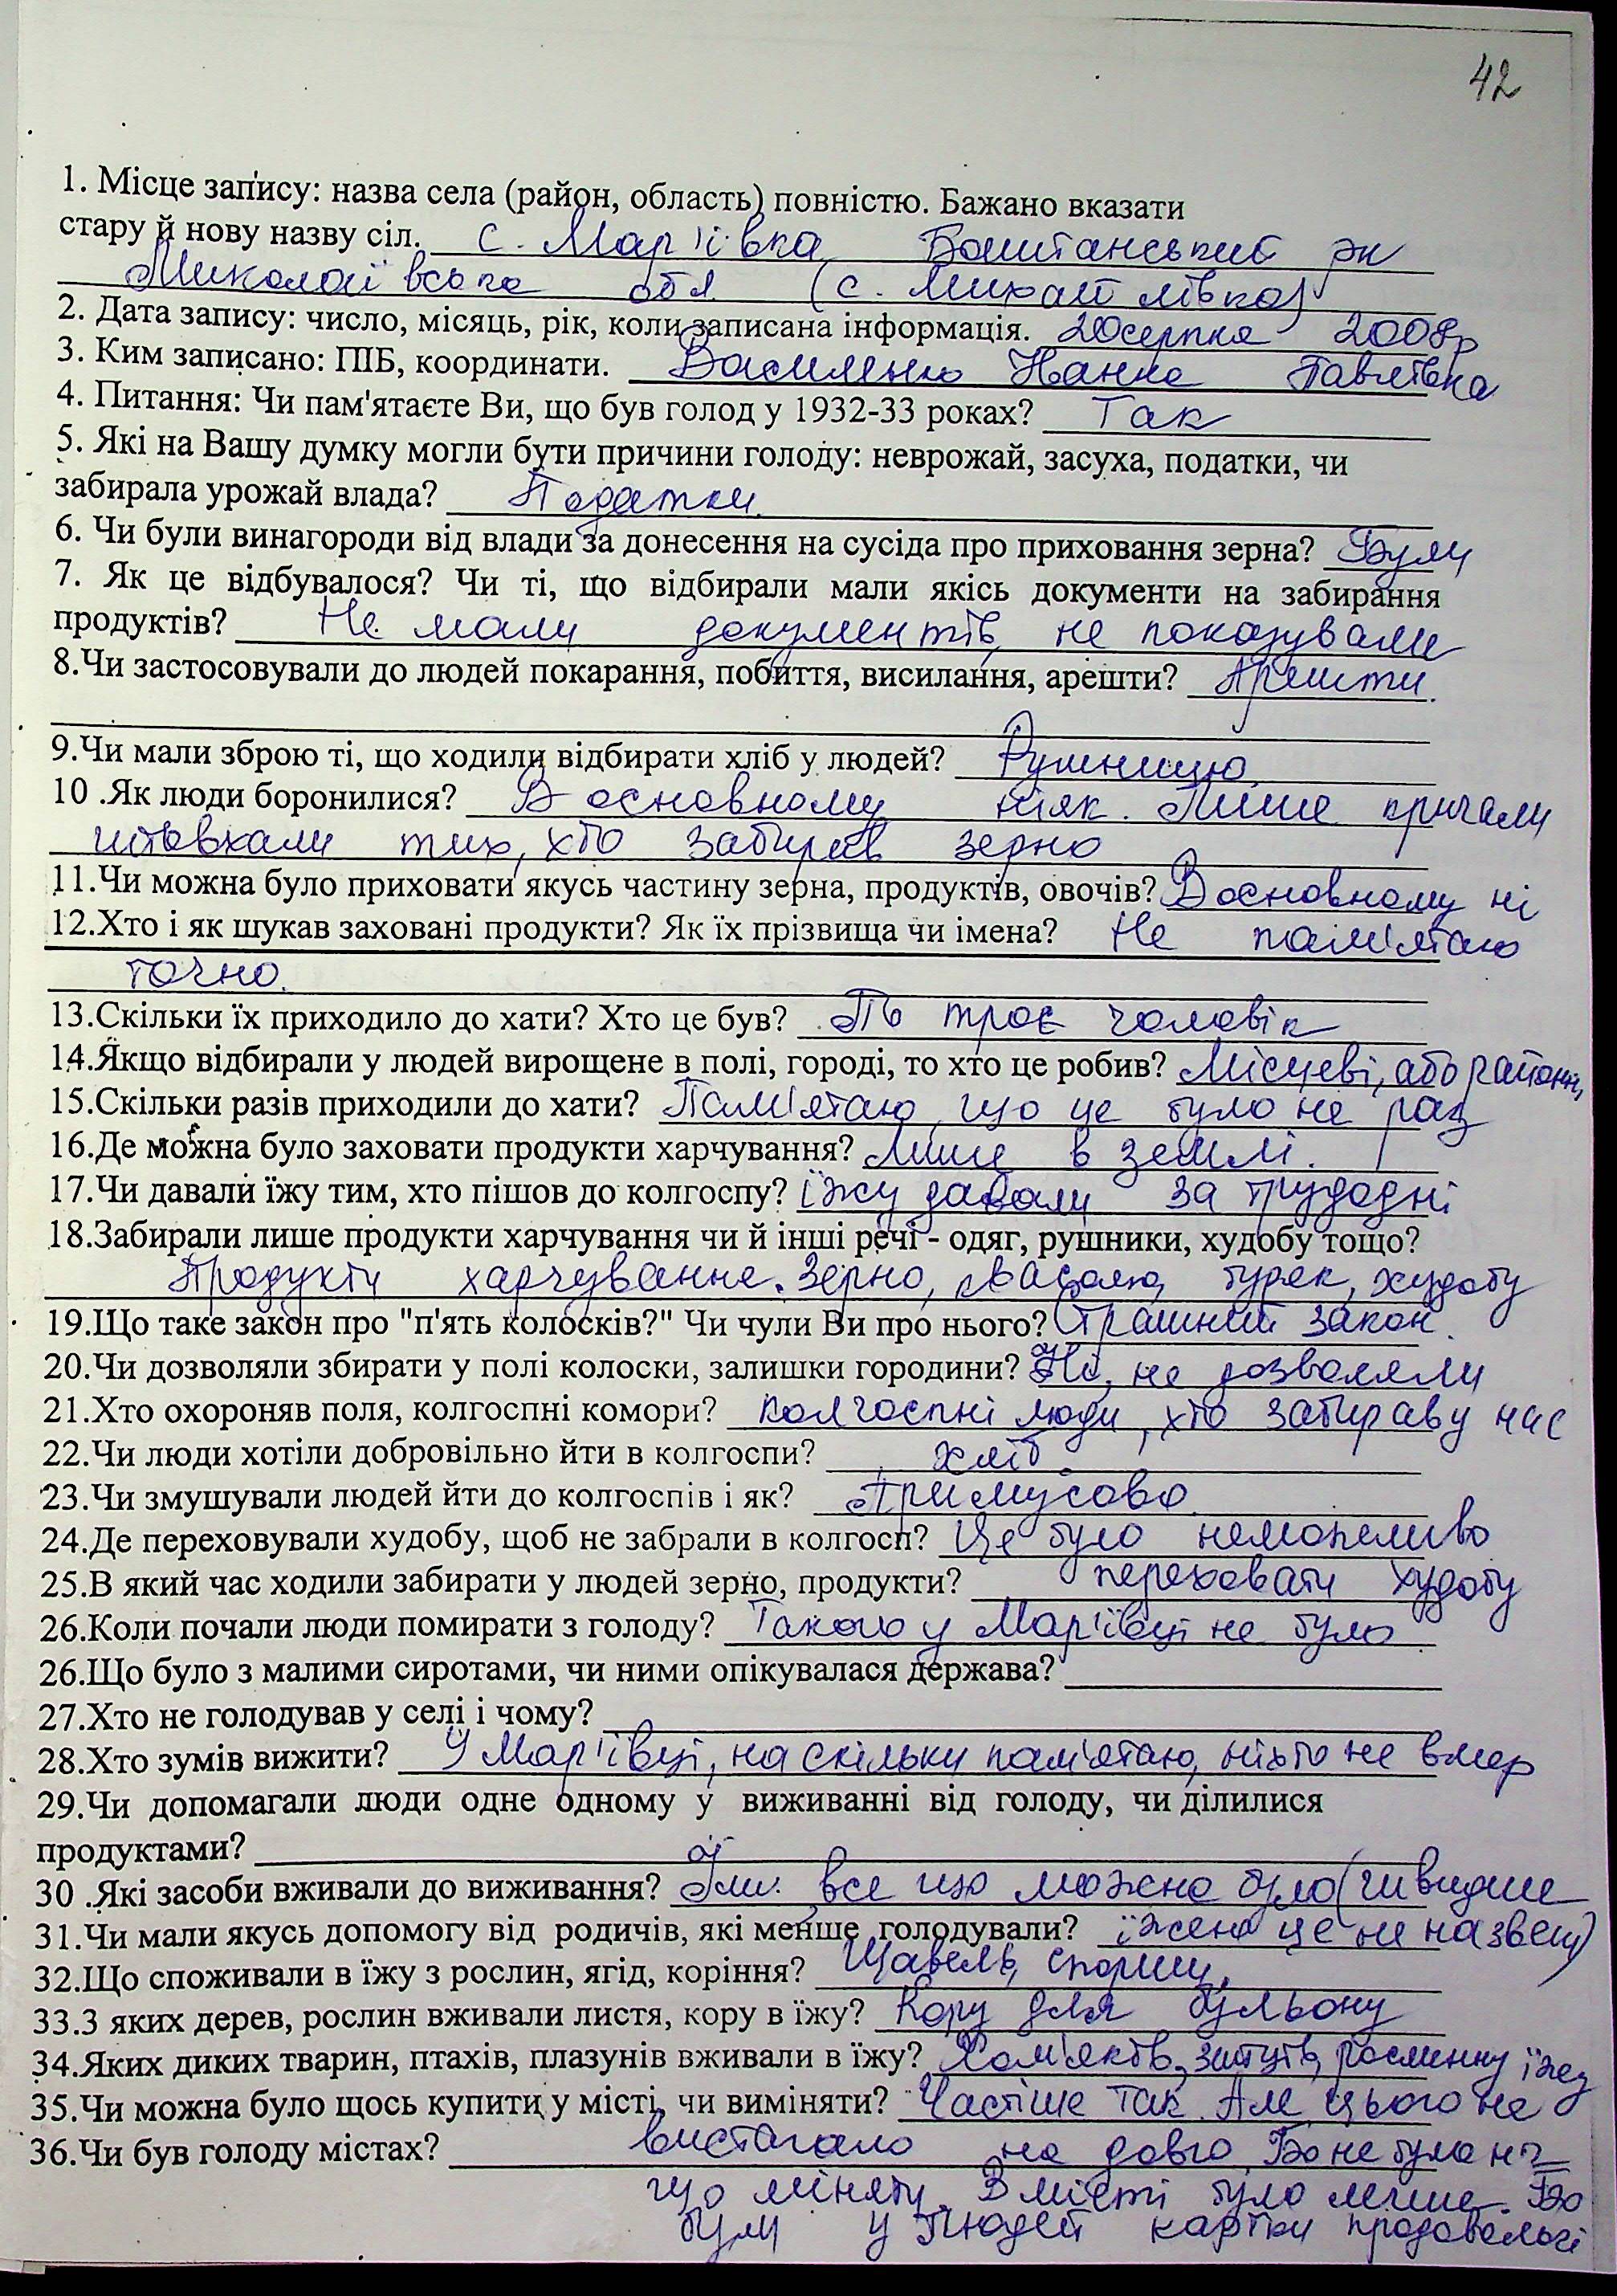 42
1. Місце запису: назва села (район, область) повністю. Бажано вказати
стару й нову назву сіл. с. Мар'ївка Баштанський рн
Миколаївська обл (с. Михайлівка)
2. Дата запису: число, місяць, рік, коли записана інформація. 20 серпня 2008р
3. Ким записано: ПІБ, координати. Павлівна
4. Питання: Чи пам'ятаєте Ви, що був голод у 1932-33 роках? Так
5. Які на Вашу думку могли бути причини голоду: неврожай, засуха, податки, чи
забирала урожай влада? Податки.
6. Чи були винагороди від влади за донесення на сусіда про приховання зерна? Були
7. Як це відбувалося? Чи ті, що відбирали мали якісь документи на забирання
продуктів? Не мали документів, не показували
8.Чи застосовували до людей покарання, побиття, висилання, арешти? Арешти.
9.Чи мали зброю ті, що ходили відбирати хліб у людей? Рушницю.
10 .Як люди боронилися? В основному ніяк. Лише кричали
штовхали тих, хто забирав зерно
11.Чи можна було приховати якусь частину зерна, продуктів, овочів? В основному ні
12.Хто і як шукав заховані продукти? Як їх прізвища чи імена? Не пам'ятаю
точно.
13.Скільки їх приходило до хати? Хто це був? По троє чоловік
14.Якщо відбирали у людей вирощене в полі, городі, то хто це робив? Місцеві, або районні,
15.Скільки разів приходили до хати? Пам'ятаю, що це було не раз
16.Де можна було заховати продукти харчування? Лише в землі.
17.Чи давали їжу тим, хто пішов до колгоспу? їжу давали за трудодні
18.Забирали лише продукти харчування чи й інші речі - одяг, рушники, худобу тощо?
Продукти харчування. Зерно, квасолю, буряк, худобу
19.Що таке закон про "п'ять колосків?" Чи чули Ви про нього? Страшний закон.
20.Чи дозволяли збирати у полі колоски, залишки городини? Ні, не дозволяли
21.Хто охороняв поля, колгоспні комори? Колгоспні люди, хто забирав у нас
22.Чи люди хотіли добровільно йти в колгоспи? хліб.
23.Чи змушували людей йти до колгоспів і як? Примусово.
24.Де переховували худобу, щоб не забрали в колгосп? Це було неможливо
25.В який час ходили забирати у людей зерно, продукти? переховати худобу
26.Коли почали люди помирати з голоду? Такого у Мар'ївці не було
26.Що було з малими сиротами, чи ними опікувалася держава?
27.Хто не голодував у селі і чому?
28.Хто зумів вижити? У Мар'ївці, на скільки пам'ятаю, ніхто не вмер
29.Чи допомагали люди одне одному у виживанні від голоду, чи ділилися
продуктами?
30 .Які засоби вживали до виживання? Їли все що можна було
31.Чи мали якусь допомогу від родичів, які менше голодували? їжею це не назвеш)
32.Що споживали в їжу з рослин, ягід, коріння? Щавель, спориш,
33.З яких дерев, рослин вживали листя, кору в їжу? Кору для бульону
34.Яких диких тварин, птахів, плазунів вживали в їжу? Хом'яків, зайців, рослинну їжу
35.Чи можна було щось купити у місті, чи виміняти? Частіше так. Але цього не
36.Чи був голод у містах? вистачало на довго. Бо не було на
що міняти. В місті було легше. Бо
були у людей картки продовольчі